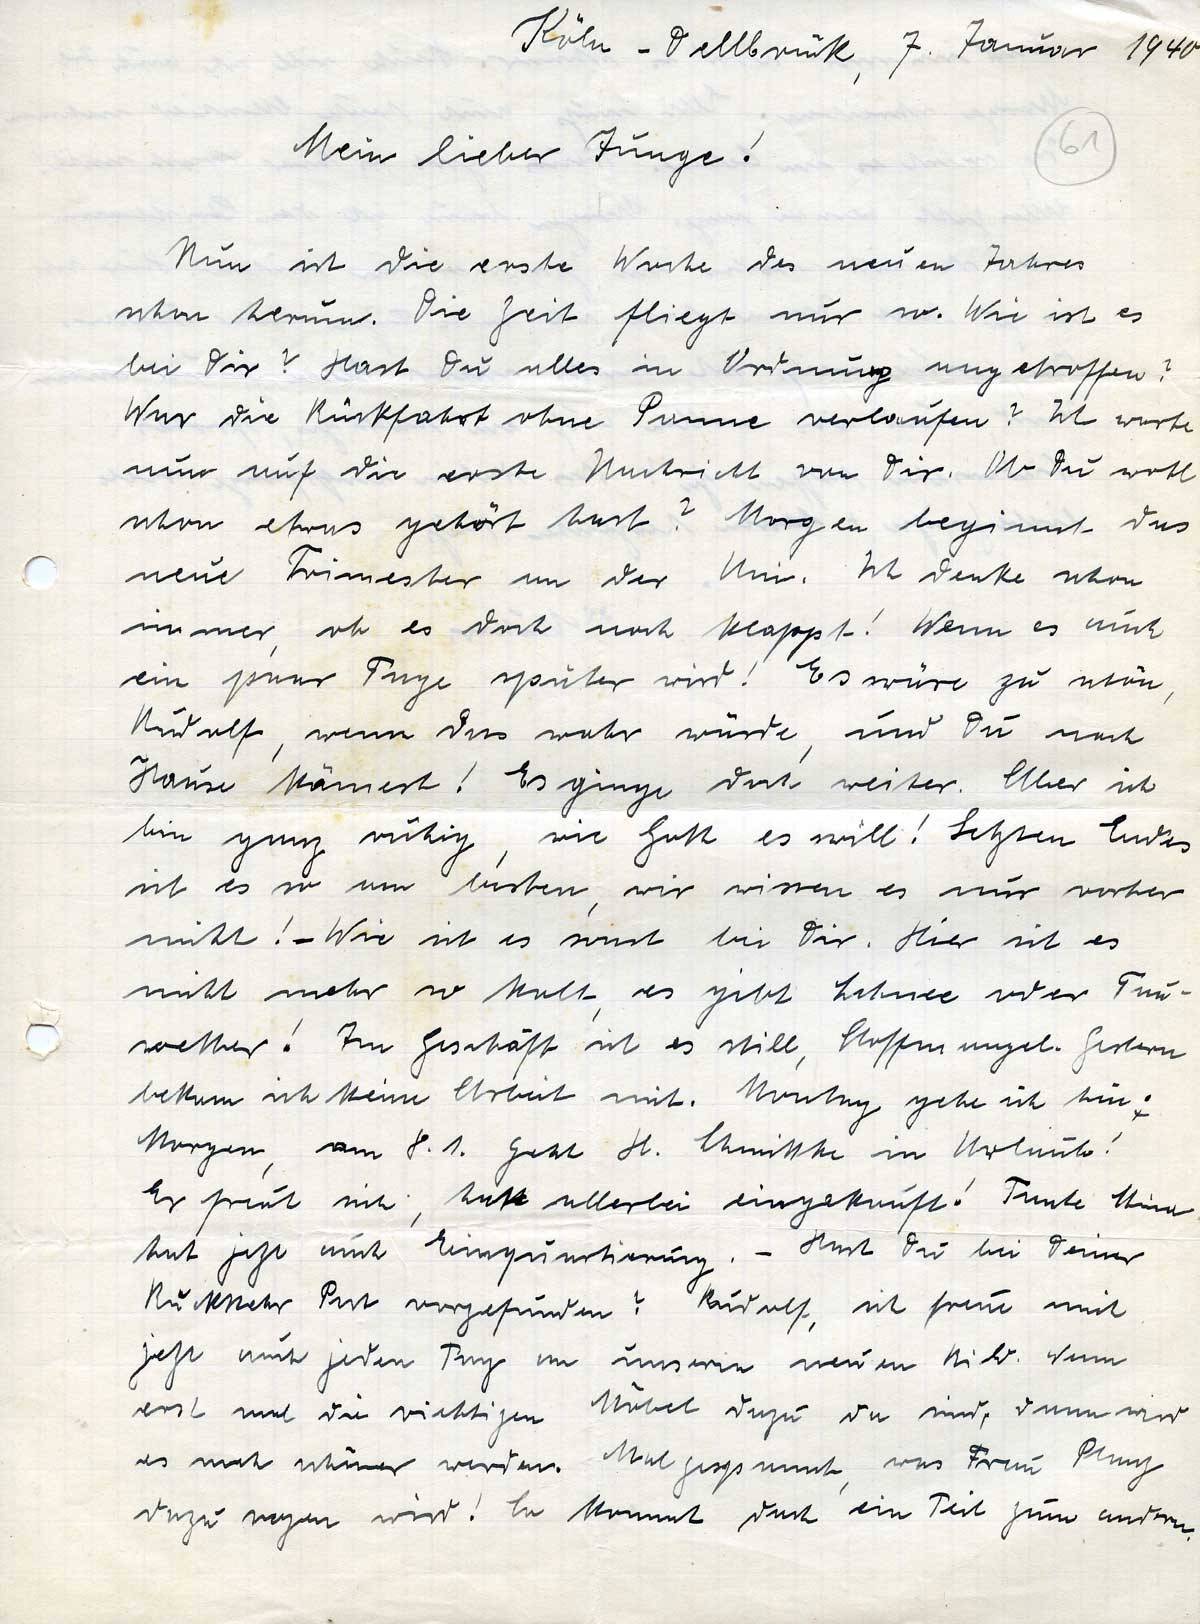 Köln - Dellbrück, 7. Januar 1940
61
Mein lieber Junge!
Nun ist die erste Woche des neuen Jahres
schon herum. Die Zeit fliegt nur so. Wie ist es
bei Dir? Hast Du alles in Ordnung angetroffen?
War die Rückfahrt ohne Panne verlaufen? Ich warte
nun auf die erste Nachricht von Dir. Ob Du wohl
schon etwas gehört hast? Morgen beginnt das
neue Trimester an der Uni. Ich denke schon
immer, ob es doch noch klappt! Wenn es auch
ein paar Tage später wird! Es wäre zu schön,
Rudolf, wenn das wahr würde, und Du nach
Hause kämest! Es ginge doch weiter. Aber ich
bin ganz ruhig, wie Gott es will! Letzten Endes
ist es so am besten, wir wissen es nur vorher
nicht! - Wie ist es sonst bei Dir. Hier ist es
nicht mehr so kalt, es gibt Schnee oder Tau-
wetter! Im Geschäft ist es still, Stoffmangel. Gestern
bekam ich keine Arbeit mit. Montag gehe ich hin.
Morgen, am 8. 1. geht H. in Urlaub!
Er freut sich, hatte allerlei eingekauft! Tante
hat jetzt auch Einquartierung. - Hast Du bei Deiner
Rückkehr Post vorgefunden? Rudolf, ich freue mich
jetzt auch jeden Tag an unserm neuen Bild. Wenn
erst mal die richtigen Möbel dazu da sind, dann wird
es noch schöner werden. Mal gespannt, was Frau
dazu sagen wird! So kommt doch ein Teil zum andern.